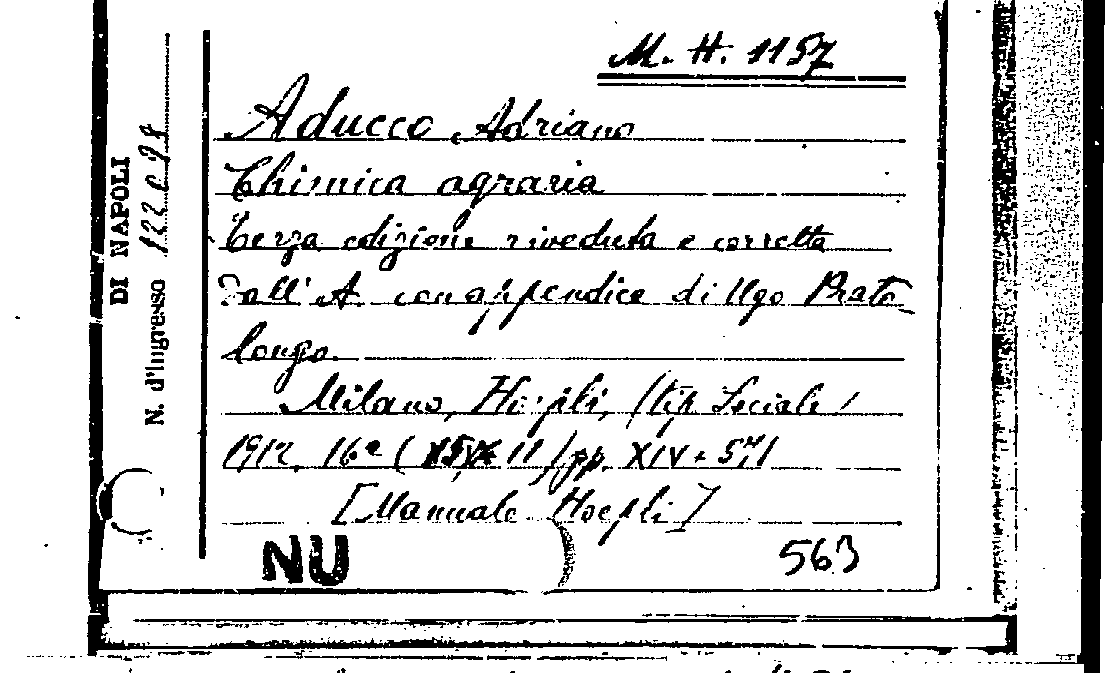 M. H. 1157
Aducco Adriano
Chimica agraria
Terza edizione riveduta e corretta
dall'A. con appendice di Ugo Prato
longo.
Milano, Hoepli, (tip. Sociale)
1912. 16° ( 11) pp. XIV-571
[Manuale Hoepli]
NU
563
DI NAPOLI
N. d'Ingresso